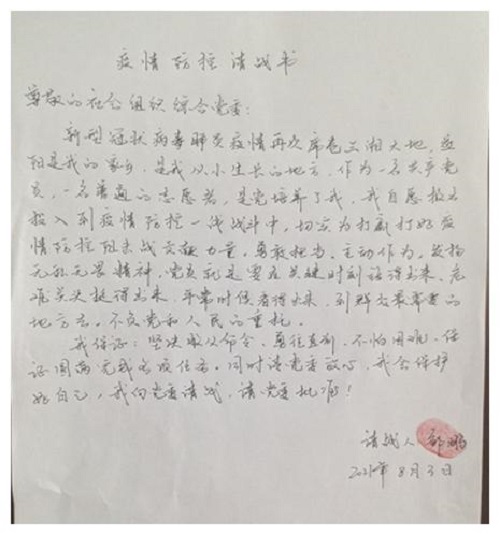 疫情防控请战书
尊敬的社会组织综合党委：
新型冠状病毒肺炎疫情再次席卷三湘大地，益
阳是我的家乡，是我从小生长的地方，作为一名共产党
员，一名普通的志愿者，是党培养了我，我自愿报名
投入到疫情防控一线战斗中，切实为打赢打好疫
情防控阻击战贡献力量，勇敢担当，主动作为，发扬
无私无畏精神，党员就是要在关键时刻站得出来，危
难关头挺得出来，平常时候看得出来，到群众最需要的
地方去，不负党和人民的重托。
我保证：坚决服从命令，勇往直前，不怕困难，保
证圆满完成战疫任务。同时请党委放心，我会保护
好自己，我向党委请战，请党委批准！
请战人 鹏
2021年8月3日